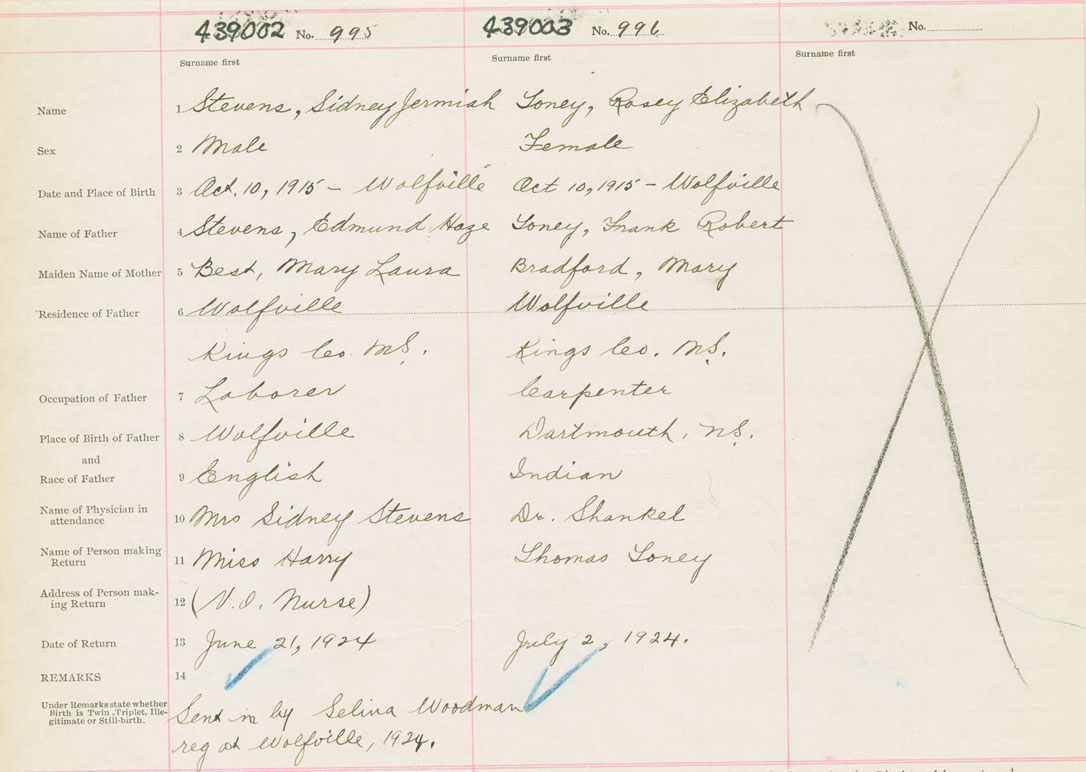 439002 No. 995 439003 No. 996 No.
Surname first Surname first Surname first
Name 1 Stevens, Sidney Jermiah Toney, Rosey Elizabeth
Sex 2 Male Female
Date and Place of Birth 3 Oct. 10, 1915 - Wolfville Oct 10, 1915 - Wolfville
Name of Father 4 Stevens, Edmund Haze Toney, Frank Robert
Maiden Name of Mother 5 Best, Mary Laura Bradford, Mary
Residence of Father 6 Wolfville Wolfville
Kings Co. N.S. Kings Co. N.S.
Occupation of Father 7 Laborer Carpenter
Place of Birth of Father 8 Wolfville Dartmouth, N.S.
and
Race of Father 9 English Indian
Name of Physician in
attendance 10 Mrs Sidney Stevens Dr. Shankel
Name of Person making
Return 11 Miss Harry Thomas Toney
Address of Person mak-
ing Return 12 (V.O. Nurse)
Date of Return 13 June 21, 1924 July 2, 1924.
REMARKS 14
Under Remarks state whether
Birth is Twin, Triplet, Ille-
gitimate or Still-birth.
Sent in by Selina Woodman
reg at Wolfville, 1924.